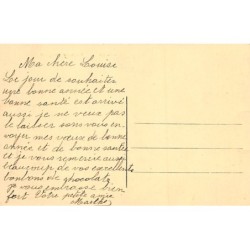 Ma chère Louise
Le jour de souhaiter
une bonne année et une
bonne santé est arrivé
aussi je ne veux pas
te laisser sans vous en
voyer mes vœux de bonne
année et de bonne santé
et je vous remercie aussi
beaucoup de vos excellents
bonbons de chocolats
Je vous embrasse bien
fort Votre petite amie
Marthe